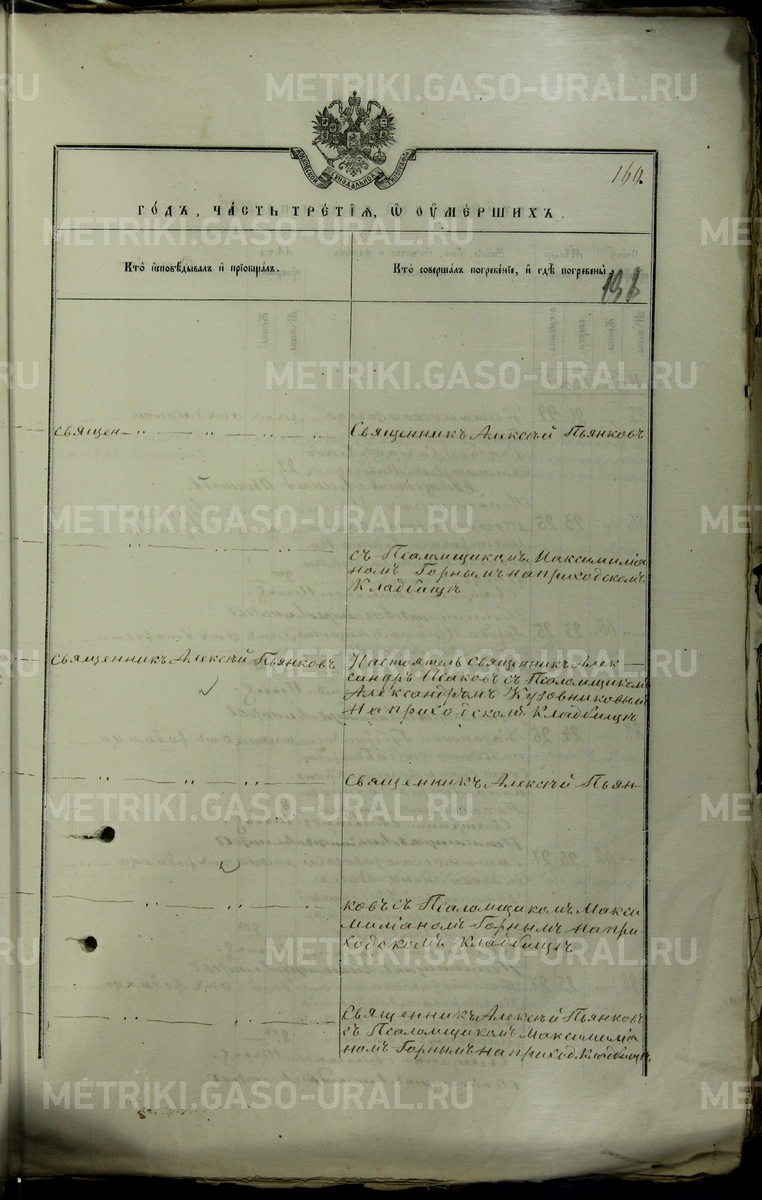 METRIKI.GASO-URAL.RU
160.
го́дъ, ча́сть тре́тїѧ, ѡ҆ ᲂу҆ме́ршихъ.
Кто̀ и҆сповѣ́дывалъ и҆ прїѡбща́лъ.
Кто̀ соверша́лъ погребе́нїе, и҆ гдѣ̀ погребены̀
198
священ- " — " — " "
Священникъ Алексѣй Пьянковъ
" — " — " — "
съ Псаломщикомъ Максимилiа
номъ Горнымъ на приходскомъ
Кладбищѣ
Священникъ Алексѣй Пьянковъ
Настоятель Священникъ Алек
сандръ Исаковъ съ Псаломщикомъ
Александромъ Кузовниковымъ
На приходскомъ Кладбищѣ
" — " — " — "
Священникъ Алексѣй Пьян
" — " — " — "
ковъ съ Псаломщикомъ Макси
милiаномъ Горнымъ на при-
ходскомъ Кладбищѣ
" — " — " — "
Священникъ Алексѣй Пьянковъ
съ Псаломщикомъ Максимилiа
номъ Горнымъ на приход. Кладбищѣ